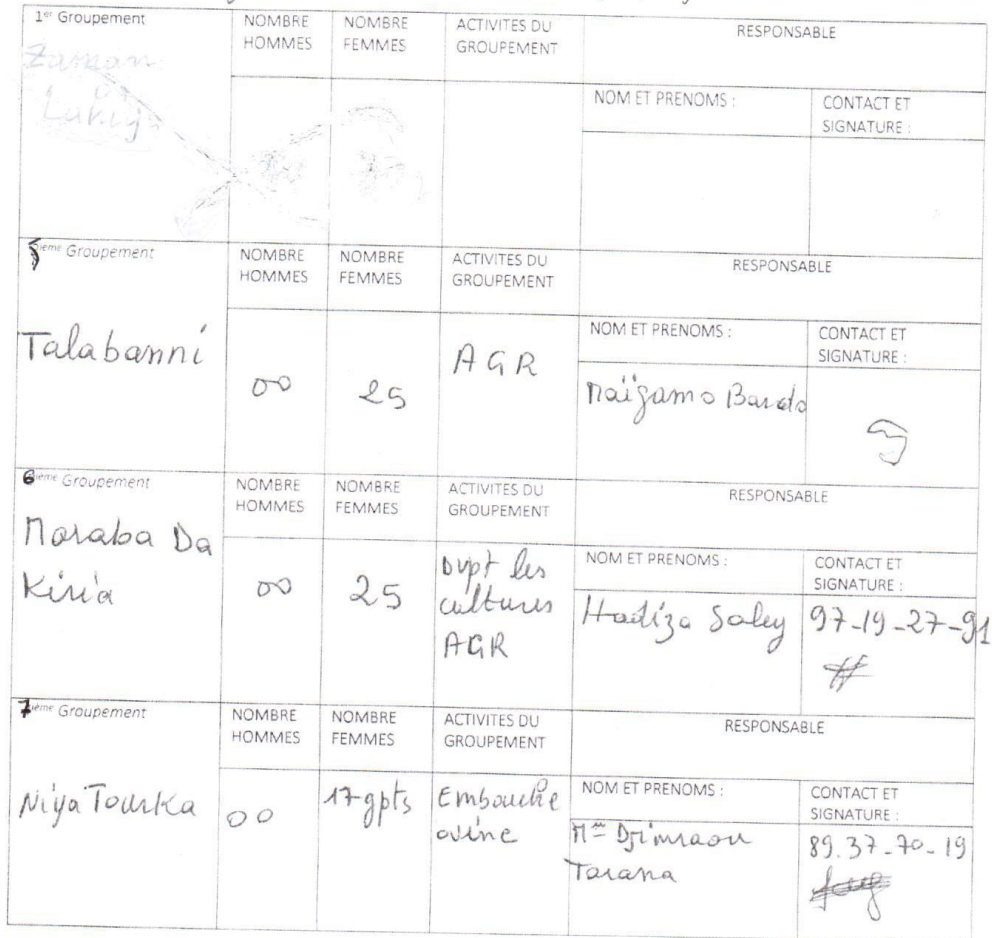 1er Groupement NOMBRE HOMMES NOMBRE FEMMES ACTIVITES DU GROUPEMENT RESPONSABLE
Zaman
Lahiya
NOM ET PRENOMS : CONTACT ET SIGNATURE :
5ieme Groupement NOMBRE HOMMES NOMBRE FEMMES ACTIVITES DU GROUPEMENT RESPONSABLE
NOM ET PRENOMS : CONTACT ET SIGNATURE :
Talabanni 00 25 AGR Maïgamo Bardo
6ieme Groupement NOMBRE HOMMES NOMBRE FEMMES ACTIVITES DU GROUPEMENT RESPONSABLE
NOM ET PRENOMS : CONTACT ET SIGNATURE :
Maraba Da
Kiria 00 25 Dvpt les
cultures
AGR
Hadiza Saley 97-19-27-91
7ième Groupement NOMBRE HOMMES NOMBRE FEMMES ACTIVITES DU GROUPEMENT RESPONSABLE
NOM ET PRENOMS : CONTACT ET SIGNATURE :
Niya Tourka 00 17 gpts Embouche
ovine
Mme Djimraou
Tarana
89.37-70-19